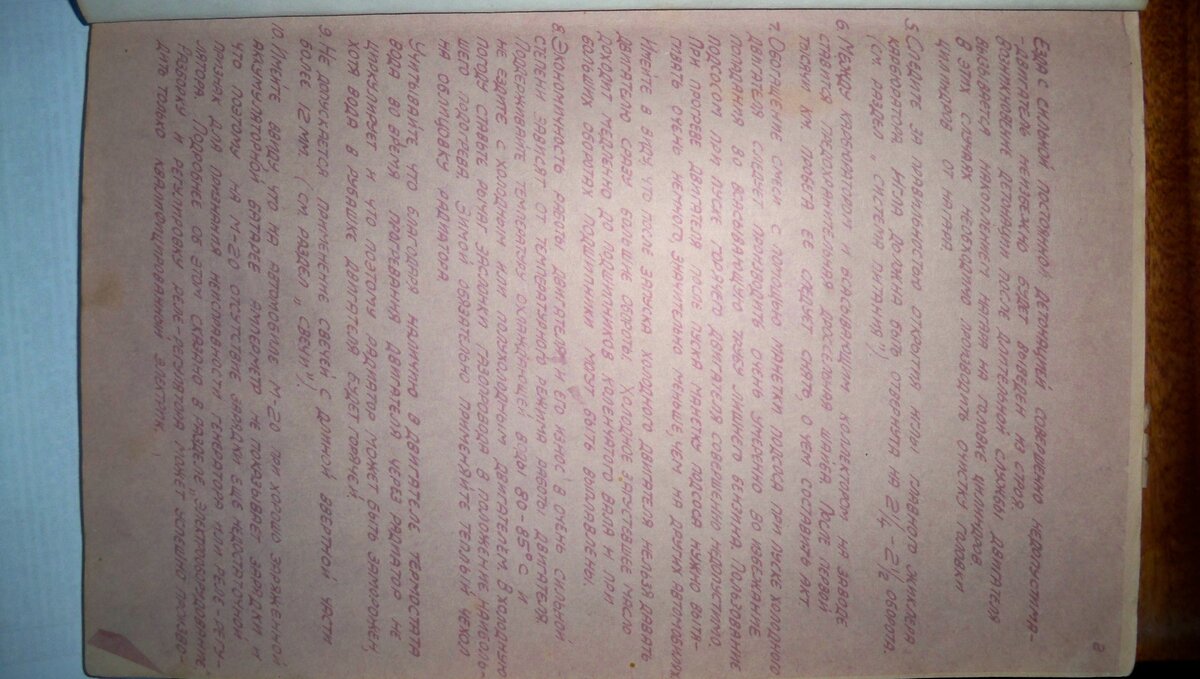 8
Езда с сильной постоянной детонацией совершенно недопустима-
-двигатель неизбежно будет выведен из строя.
Возникновение детонации после длительной службы двигателя
вызывается накоплением нагара на головке цилиндров.
В этих случаях необходимо производить очистку головки
цилиндров от нагара
5. Следите за правильностью открытия иглы главного жиклера
карбюратора. Игла должна быть отвернута на 2 1/4 - 2 1/2 оборота.
(см. раздел „Система питания").
6. Между карбюратором и всасывающим коллектором на заводе
ставится предохранительная дроссельная шайба. После первой
тысячи км. пробега ее следует снять, о чем составить акт.
7. Обогащение смеси с помощью манетки подсоса при пуске холодного
двигателя следует производить очень умеренно во избежание
попадания во всасывающую трубу лишнего бензина. Пользование
подсосом при пуске горячего двигателя совершенно недопустимо.
При прогреве двигателя после пуска манетку подсоса нужно вытя-
гивать очень немного, значительно меньше, чем на других автомобилях
Имейте в виду, что после запуска холодного двигателя нельзя давать
двигателю сразу большие обороты. Холодное загустевшее масло
доходит медленно до подшипников коленчатого вала и при
больших оборотах подшипники могут быть выплавлены.
8. Экономичность работы двигателя и его износ в очень сильной
степени зависят от температурного режима работы двигателя.
Поддерживайте температуру охлаждающей воды 80-85°С и
не ездите с холодным или полухолодным двигателем. В холодную
погоду ставьте рычаг заслонки газопровода в положение наиболь-
шего подогрева. Зимой обязательно применяйте теплый чехол
на облицовку радиатора.
Учитывайте, что благодаря наличию в двигателе термостата
вода во время прогревания двигателя через радиатор не
циркулирует и что поэтому радиатор может быть заморожен,
хотя вода в рубашке двигателя будет горячей.
9. Не допускается применение свечей с длиной ввертной части
более 12 мм. (см раздел „Свечи").
10. Имейте ввиду что на автомобиле М-20 при хорошо заряженной
аккумуляторной батарее амперметр не показывает зарядки и
что поэтому на М-20 отсутствие зарядки еще недостаточной
признак для признания неисправности генератора или реле-регу-
лятора. Подробнее об этом сказано в разделе „Электрооборудование"
Разборку и регулировку реле-регулятора может успешно произво-
дить только квалифицированный электрик.